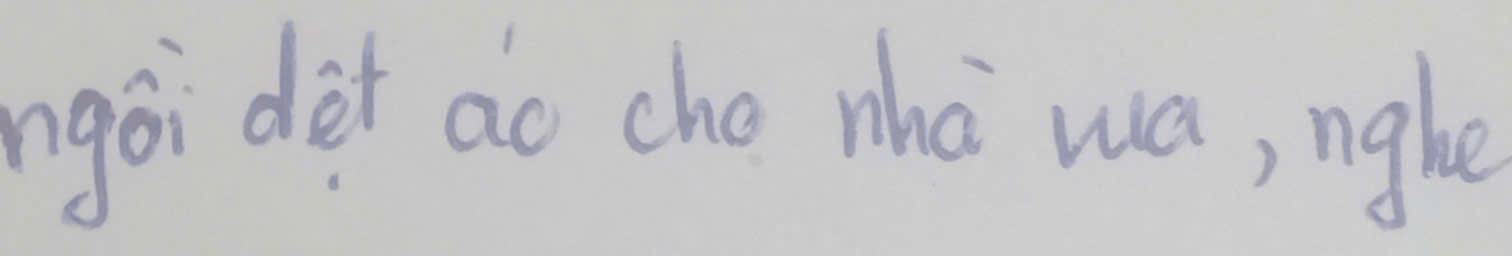 ngồi dệt áo cho nhà vua, nghe